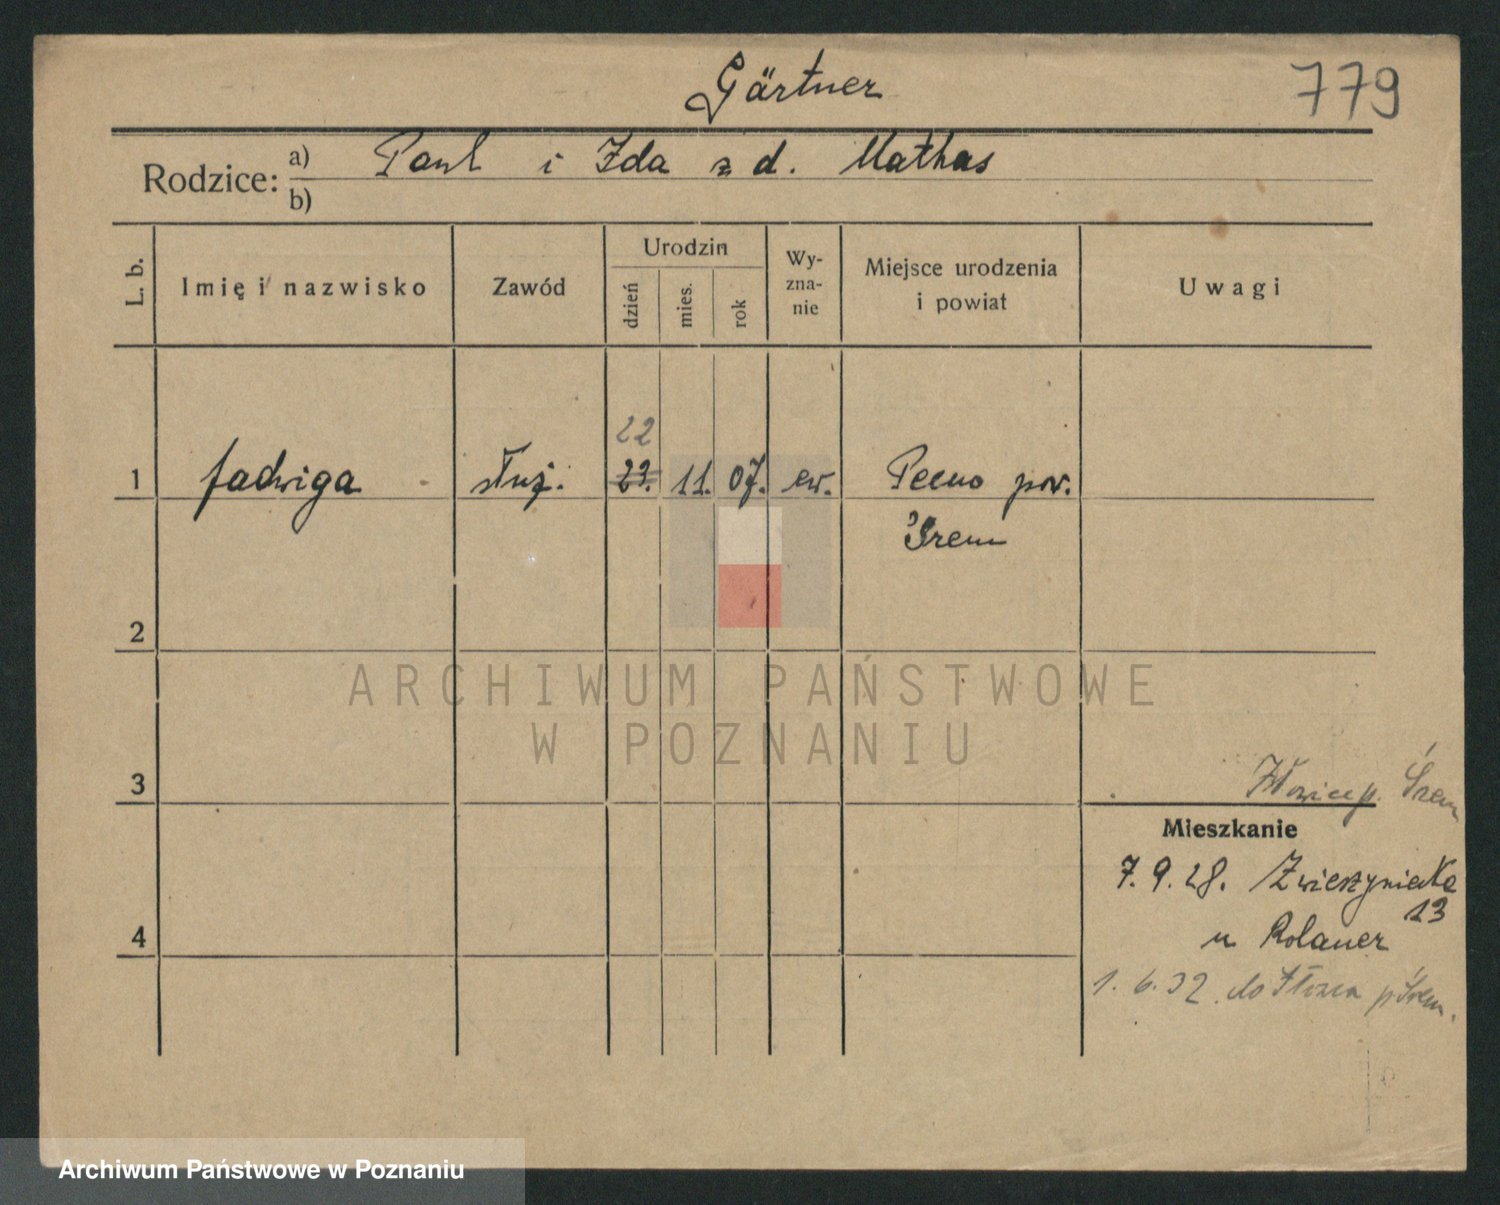 Gärtner
779
Rodzice: a) Paul i Ida z d. Mathas
b)
L. b.
Imię i nazwisko
Zawód
Urodzin
dzień
mies.
rok
Wy-
zna-
nie
Miejsce urodzenia
i powiat
Uwagi
22
1 Jadwiga służ. 23. 11. 07. ew. Pecno pow.
Śrem
2
ARCHIWUM PAŃSTWOWE
W POZNANIU
3
p. Śrem
Mieszkanie
7.9.28. Zwierzyniecka
13
4
u Rolauer
1.6.32. do p Śrem.
Archiwum Państwowe w Poznaniu